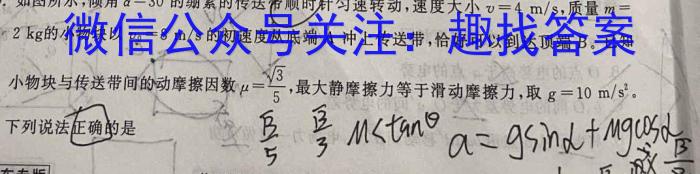 如图所示,倾角α=30°的绷紧的传送带顺时针匀速转动,速度大小v=4 m/s,质量m=
2 kg的小物块以 =8 m/s的初速度从底端A冲上传送带,恰好可以到达顶端B。已知
微信公众号关注:趣找答案
小物块与传送带间的动摩擦因数μ=√3/5,最大静摩擦力等于滑动摩擦力,取g=10 m/s²。
下列说法正确的是
√3/5 √3/3 μ<tanθ a=gsinα+μgcosα